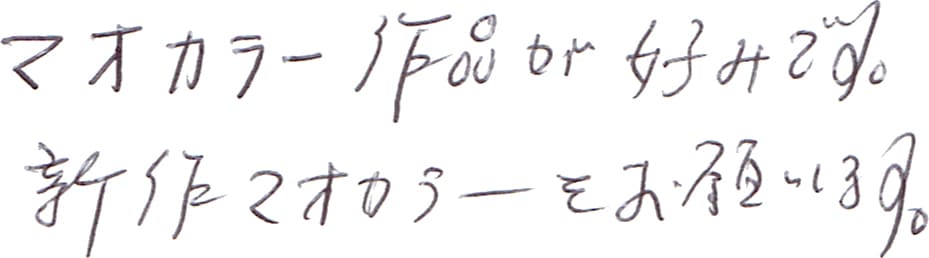 マオカラー作品が好みです。
新作マオカラーをお願いします。